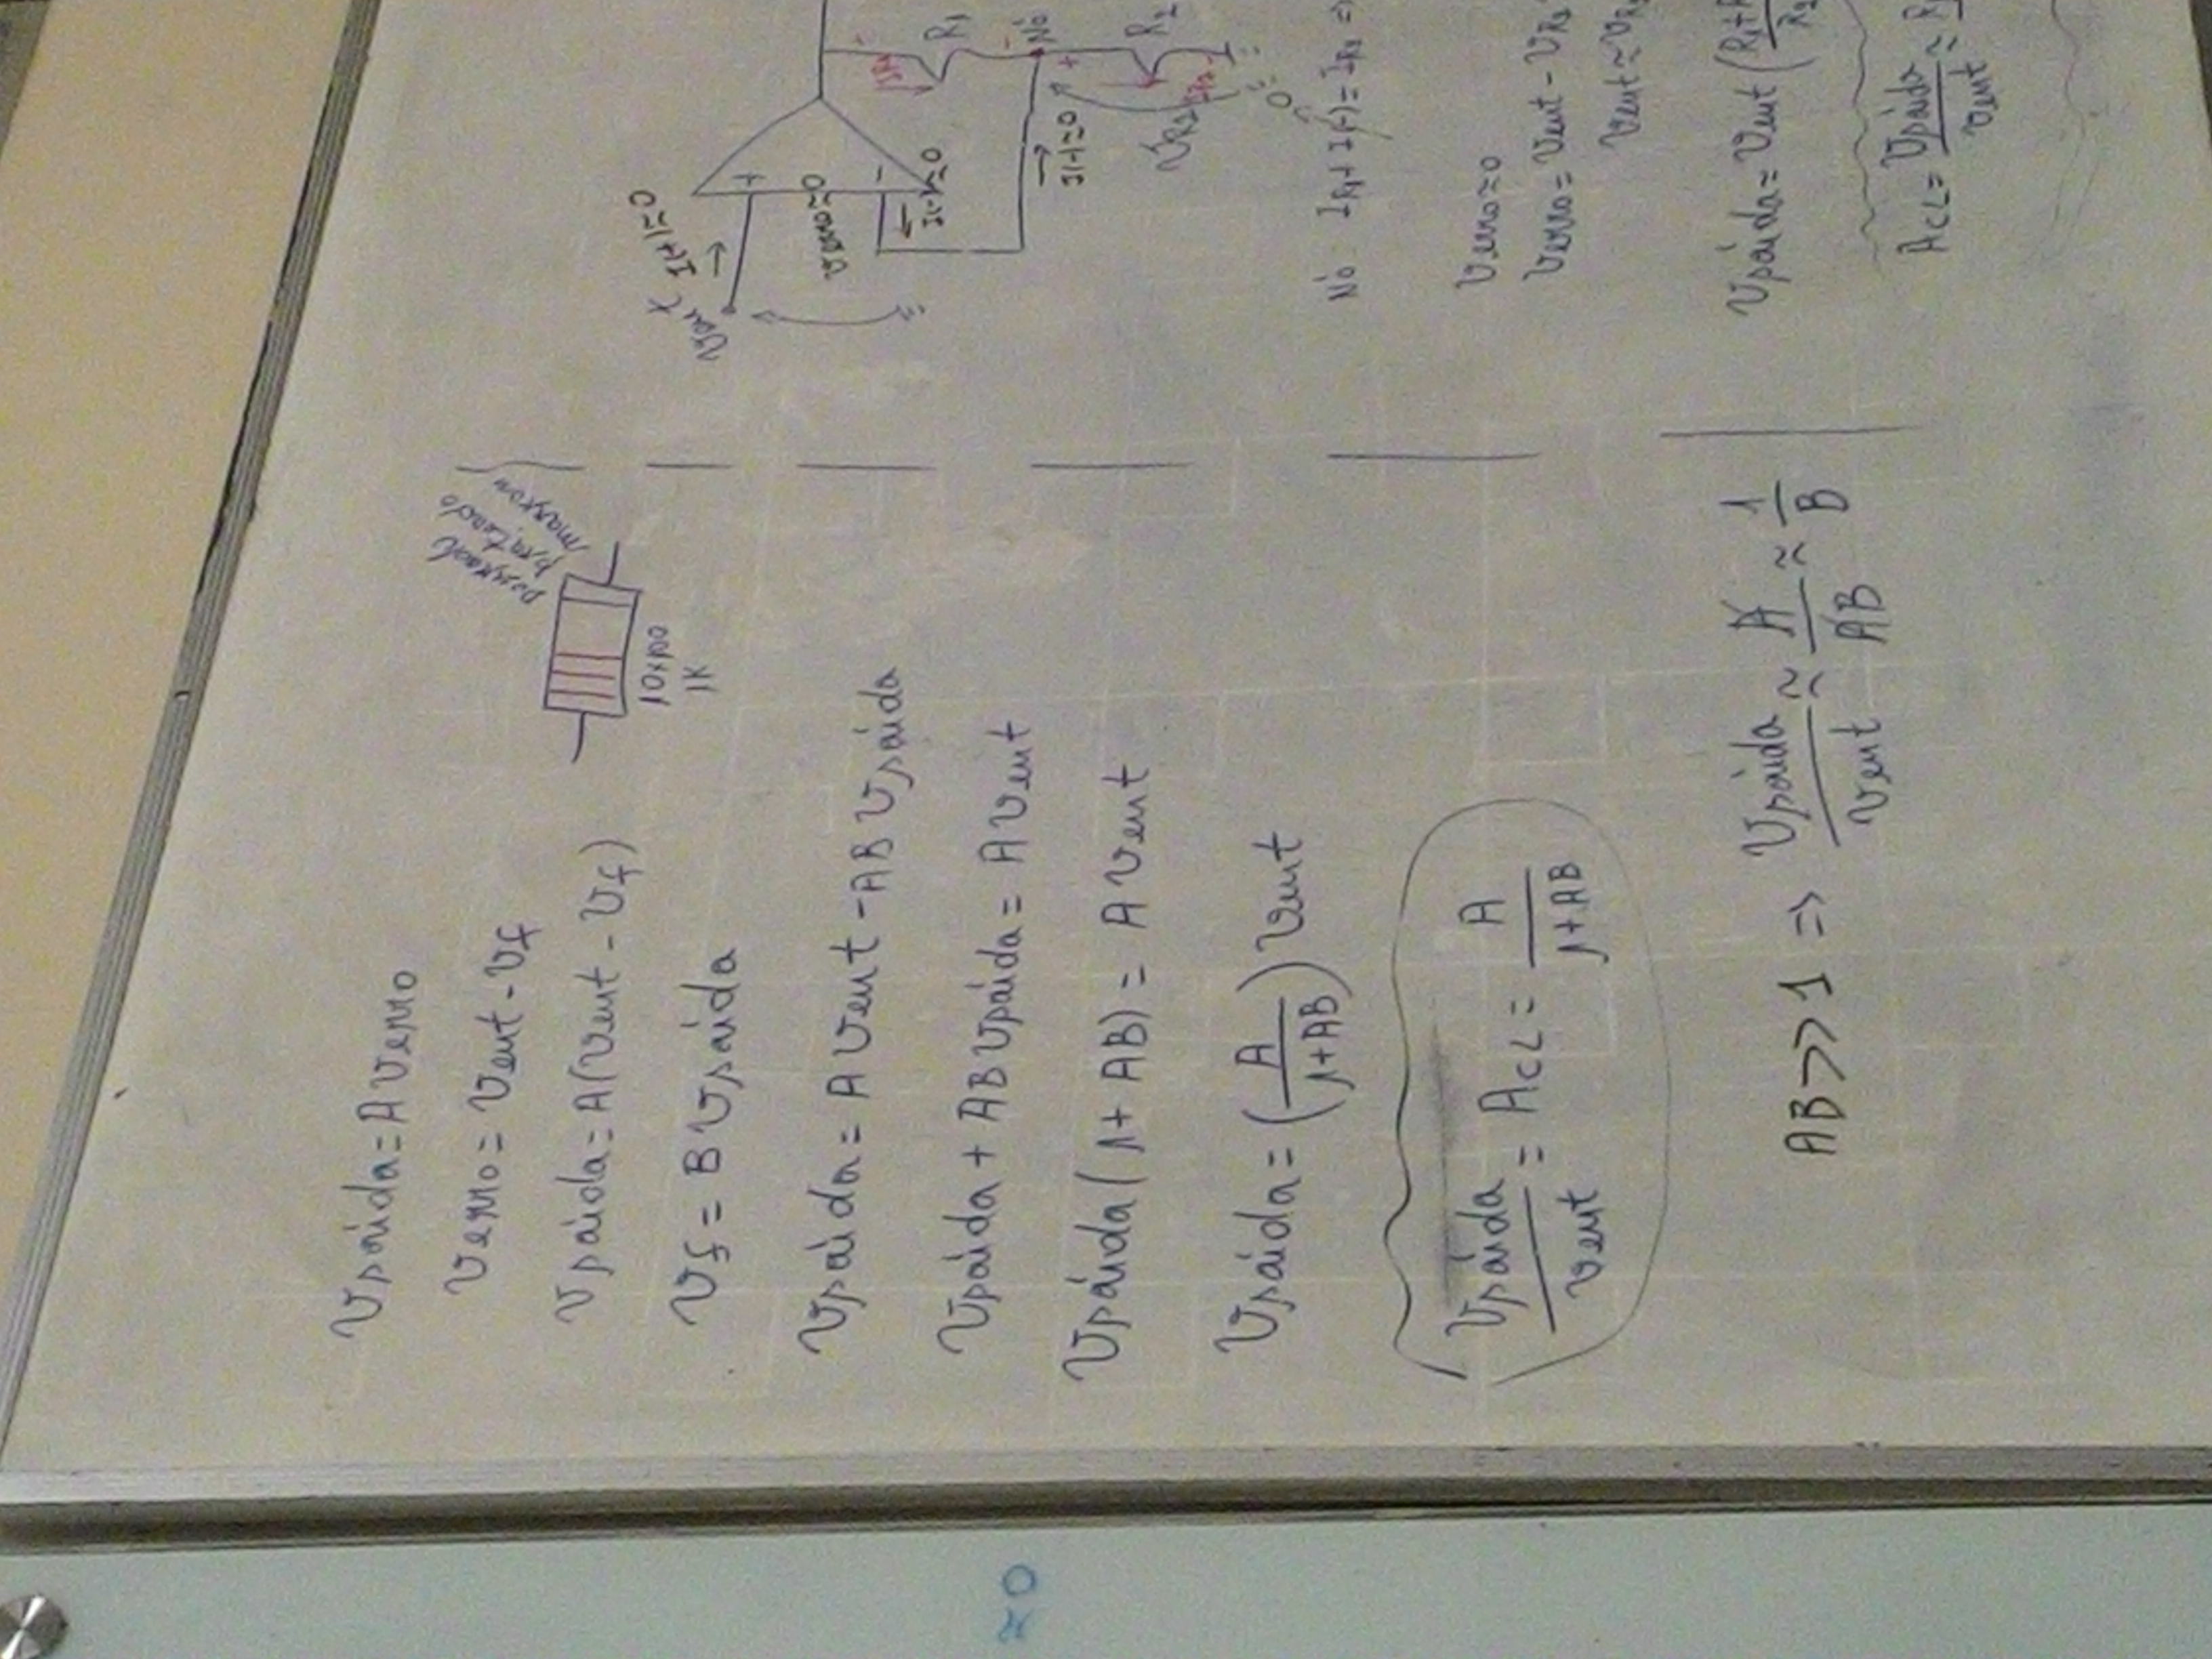 Vsaída = A Verro
Verro = Vent - Vf
Vsaída = A(Vent - Vf)
Vf = B Vsaída
Vsaída = A Vent - AB Vsaída
Vsaída + AB Vsaída = A Vent
Vsaída (1 + AB) = A Vent
Vsaída = (A / 1+AB) Vent
Vsaída / Vent = ACL = A / 1+AB
AB >> 1 => Vsaída / Vent ≈ A / AB ≈ 1 / B
dourado
prateado
marrom
10x100
1K
Vent
I(+)≈0
+
Verro≈0
-
I(-)≈0
IR1
R1
-
Nó
I(-)≈0
+
VR2
R2
IR2
-
0
Nó IR1 + I(-) = IR2 =>
Verro≈0
Verro = Vent - VR2
Vent ≈ VR2
Vsaída = Vent (R1+R / R2
ACL = Vsaída / Vent ≈
≈0